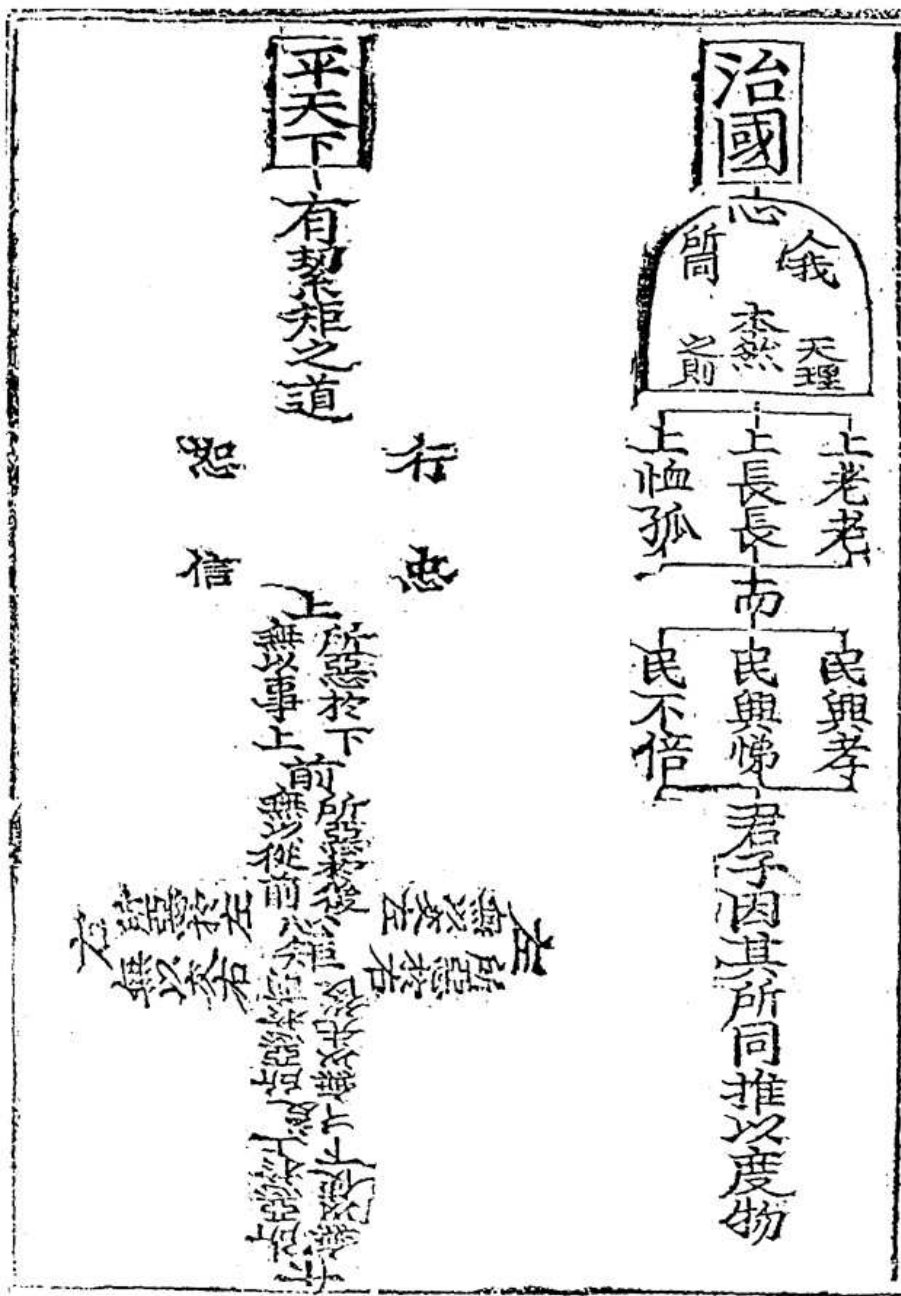 治國
心
人我
所同
天理
本然
之則
上老老
上長長
上恤孤
而
民興孝
民興悌
民不倍
君子因其所同推以度物
平天下
有絜矩之道
行
恕
忠
信
上
所惡於下
無以事上
前
所惡於後
無以從前
左
所惡於右
無以交左
右
所惡於左
無以交右
後
所惡於前
無以先後
下
所惡於上
無以使下